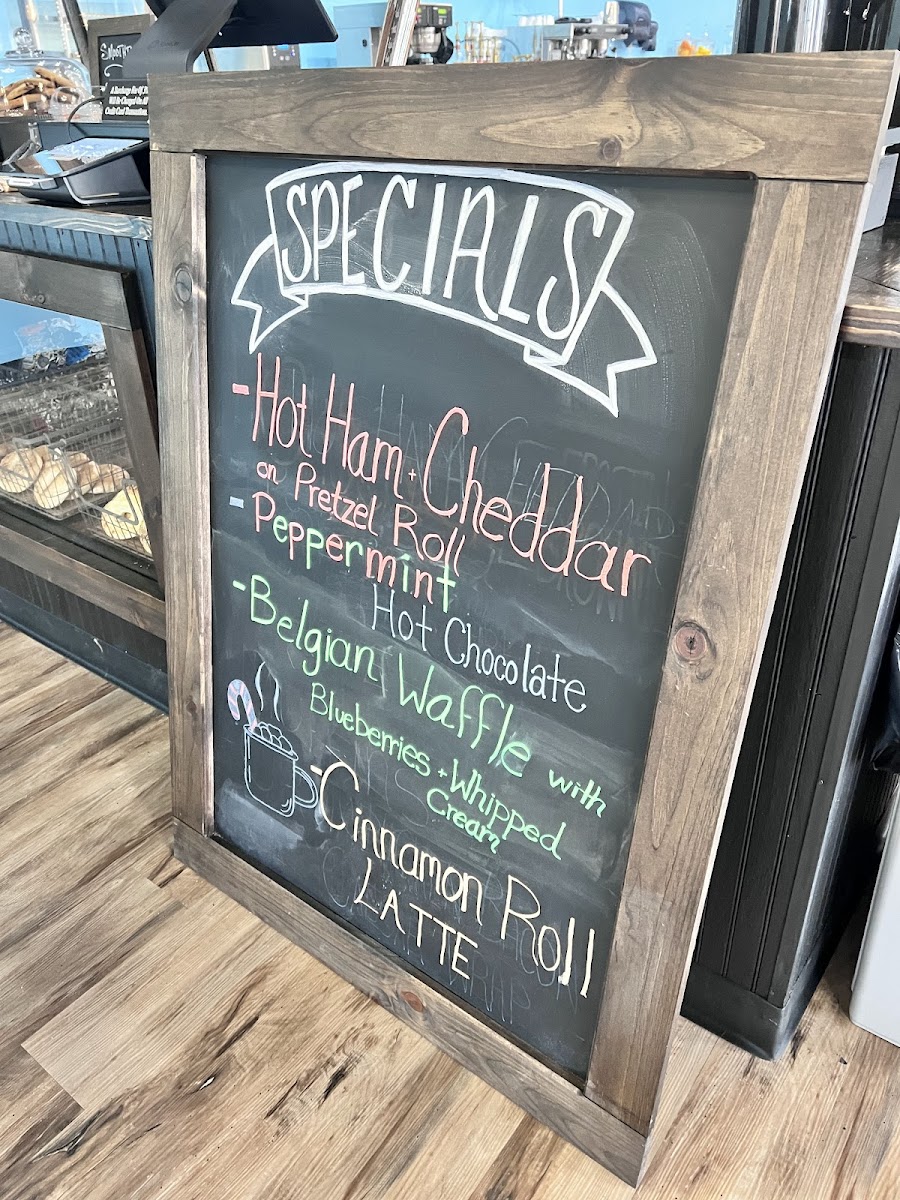 SPECIALS
- Hot Ham + Cheddar
on Pretzel Roll
- Peppermint
Hot Chocolate
- Belgian Waffle with
Blueberries + Whipped
Cream
- Cinnamon Roll
LATTE